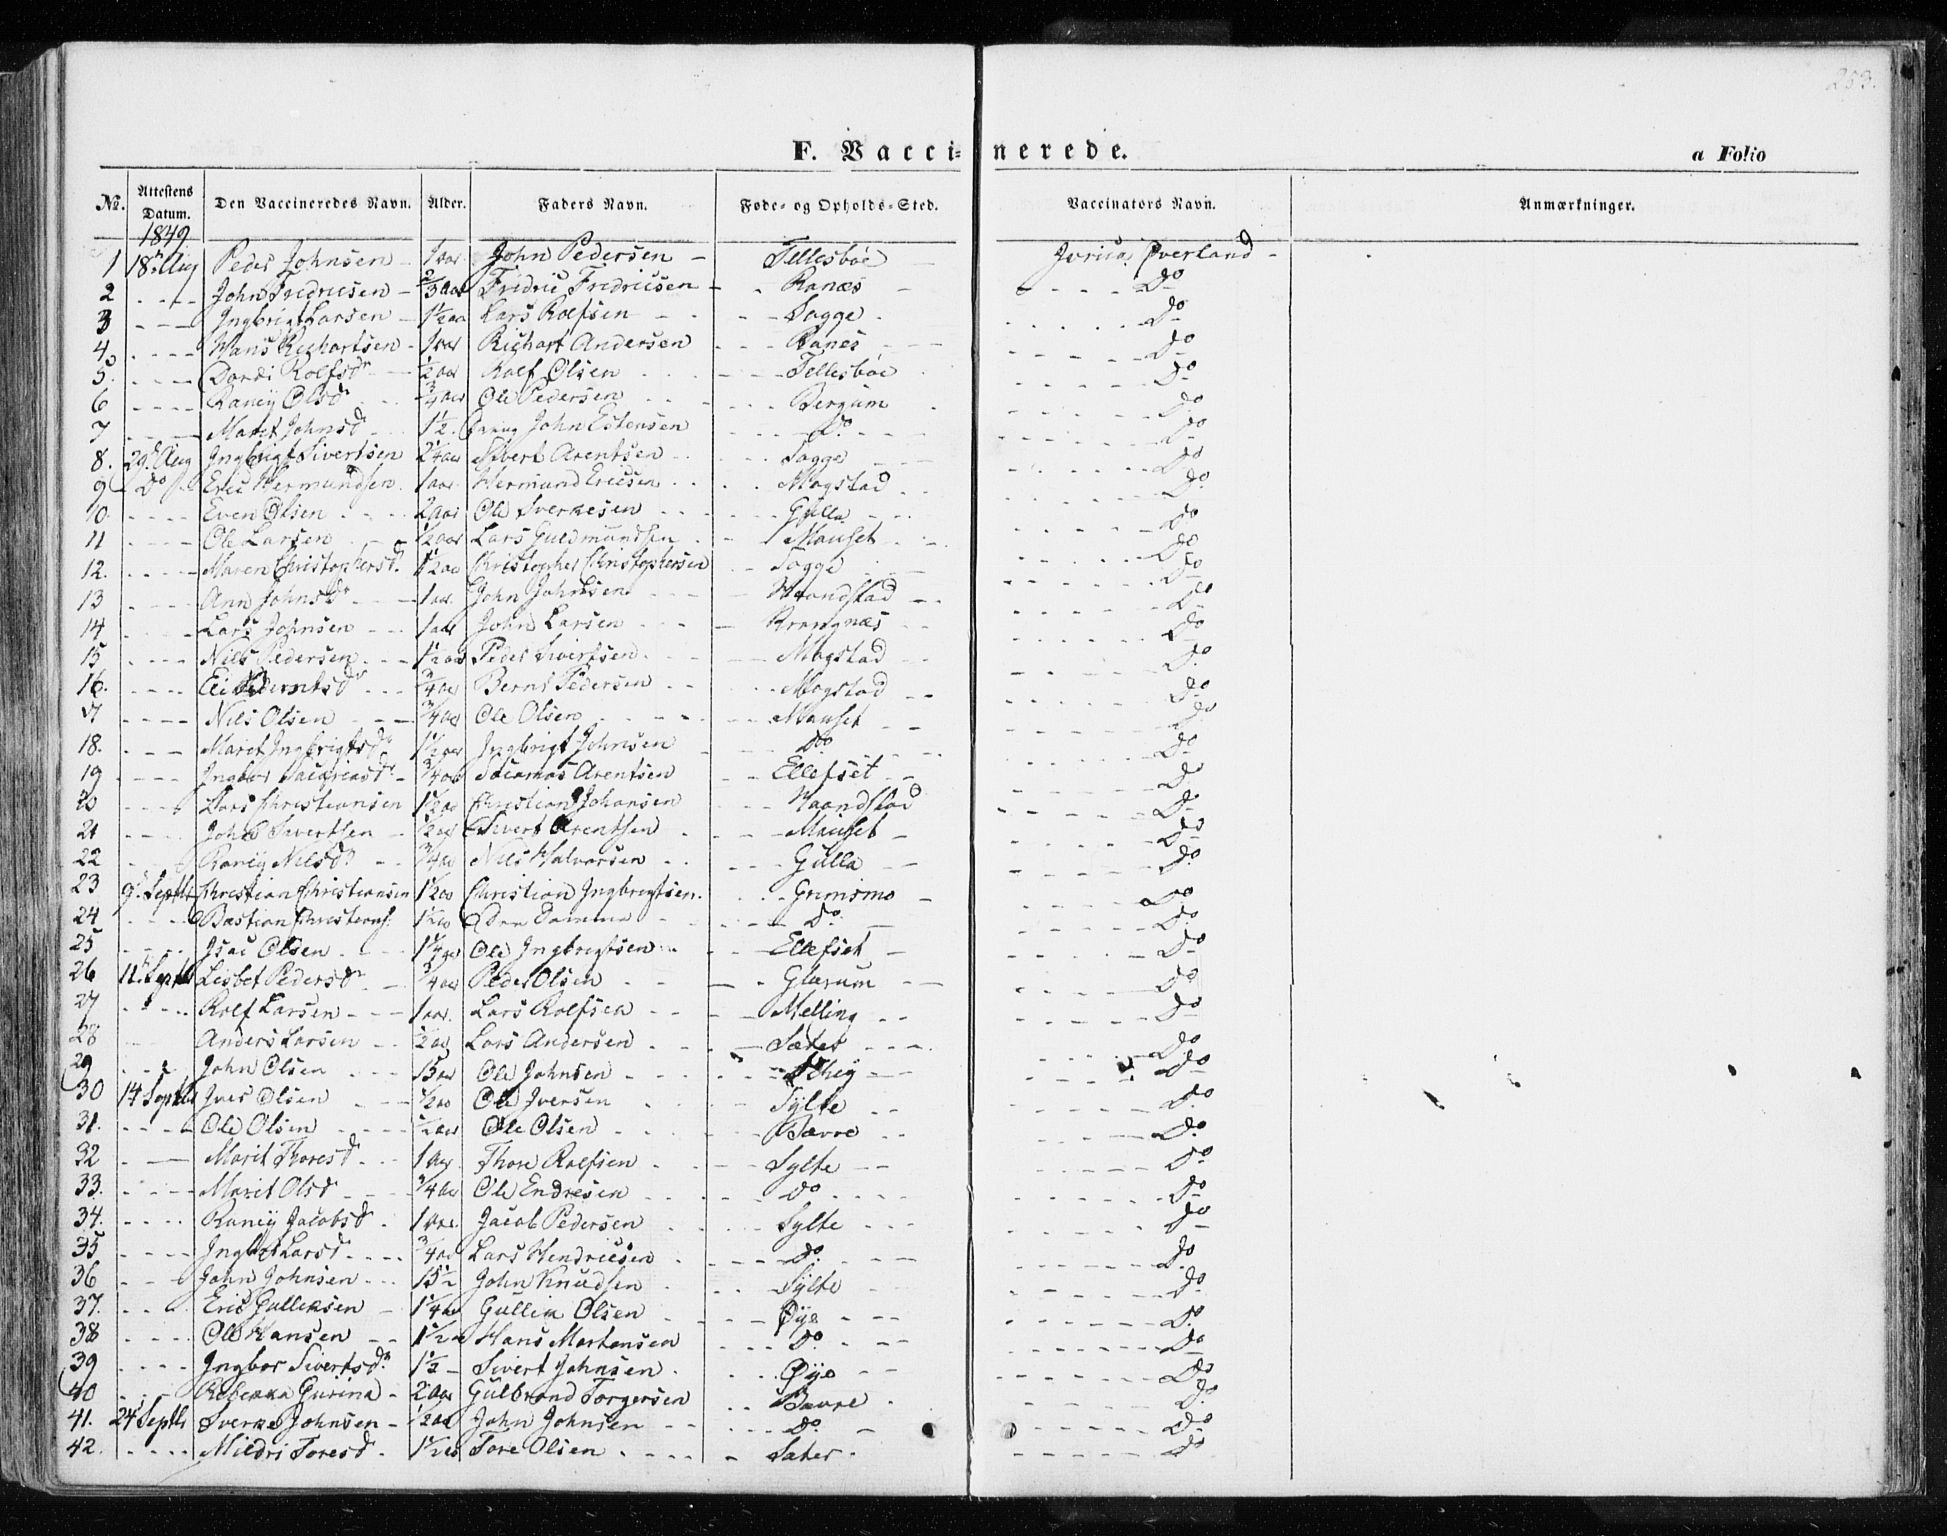 253.
F. Vaccinerede.
a Folio
No. Attestens Datum. Den Vaccineredes Navn. Alder. Faders Navn. Føde- og Opholds-Sted. Vaccinators Navn. Anmærkninger.
1849
1 18 Aug Peder Johnsen 1 aar John Pedersen Tellesbøe Overland
2 John Fredricsen Fridric Fridricsen Ranæs Do
3 Ingbrigt Larsen 1 1/2 aa Lars Rolfsen Sagge Do
4 Hans Richartsen 1 aar Richart Andersen Ranes Do
5. Dordi Rolfsdr 1/2 aar Rolf Olsen Tellesbøe Do
6 Raney Olsdr 3/4 aar Ole Pedersen Bergum Do
7 Marit Johnsd 1 1/2 John Estensen Do Do
8. 29 Aug Ingbrigt Sivertsen 2 1/4 aar Sivert Arentsen Sagge Do
9 Do Eric Hermundsen 1 aar Hermund Ericsen Mogstad Do
10. Even Olsen 2 aar Ole Sverkesen Gulla Do
11 Ole Larsen 1/2 aar Lars Guldmundsen Mauset Do
12. Maren Christophersd. 1 1/2 aa Christopher Christophersen Sagge Do
13 Ann Johnsdr 1 aar John Johnsen Haandstad Do
14 Lars Johnsen 1 aar John Larsen Krangnæs Do
15 Niels Pedersen 1 1/2 aar Peder Sivertsen Mogstad Do
16. Berntsdr 3/4 aar Bernt Pedersen Mogstad Do
17 Nils Olsen 3/4 aar Ole Olsen Mauset Do
18. Marit Ingbrigtsdr 1 1/2 aar Ingbrigt Johnsen Do Do
19 Ingbor 3/4 aar Arentsen Ellefset Do
20 Lars Christiansen 1 1/2 aa Christian Johansen Haandstad Do
21 John Sivertsen 1/2 aar Sivert Arentsen Mauset Do
22 Raney Nilsdr 3/4 aa Nils Halvorsen Gulla Do
23 9 Septbr Christian Christiansen 1 1/2 aa Christian Ingbrigtsen. Grimsmo Do
24 Bastian 1 1/2 aa Den Samme Do Do
25 Isac Olsen 1 1/4 aar Ole Ingbrigtsen Ellefset Do
26 11 Septbr Lisbet Pedersdr 3/4 aar Peder Olsen Glærum Do
27 Rolf Larsen 1 aar. Lars Rolfsen Melling Do
28 Anders Larsen 1/2 aa Lars Andersen Sæter Do
29 John Olsen Ole Johnsen Do
30 14 Septbr Iver Olsen 1/2 aa Ole Iversen Sylte Do
31. Ole Olsen 1/2 aar Ole Olsen Bævre Do
32 Marit Thoresd 1 aar Thore Rolfsen Sylte Do
33. Marit Olsd 3/4 aar Ole Endresen Do Do
34. Raney Jacobsd 1 aar Jacob Pedersen Sylte Do
35 Larsd 3/4 aar Lars Hendricsen Do Do
36 John Johnsen John Knudsen Sylte Do
37. Eric Gulleksen 1 1/4 aa Gullik Olsen Øye Do
38 Ole Hansen 1 1/2 a Hans Mortensen Do Do
39 Ingbor Sivertsdr 1 1/2 Sivert Johnsen Øye Do
40 Rebekka Gurina 2 aar Gulbrand Torgersen Bævre Do
41. 24 Septbr Sverke Johnsen 1/2 aar John Johnsen Do Do
42. Mildri Toresd. 1 1/2 aa Tore Olsen Sæter Do